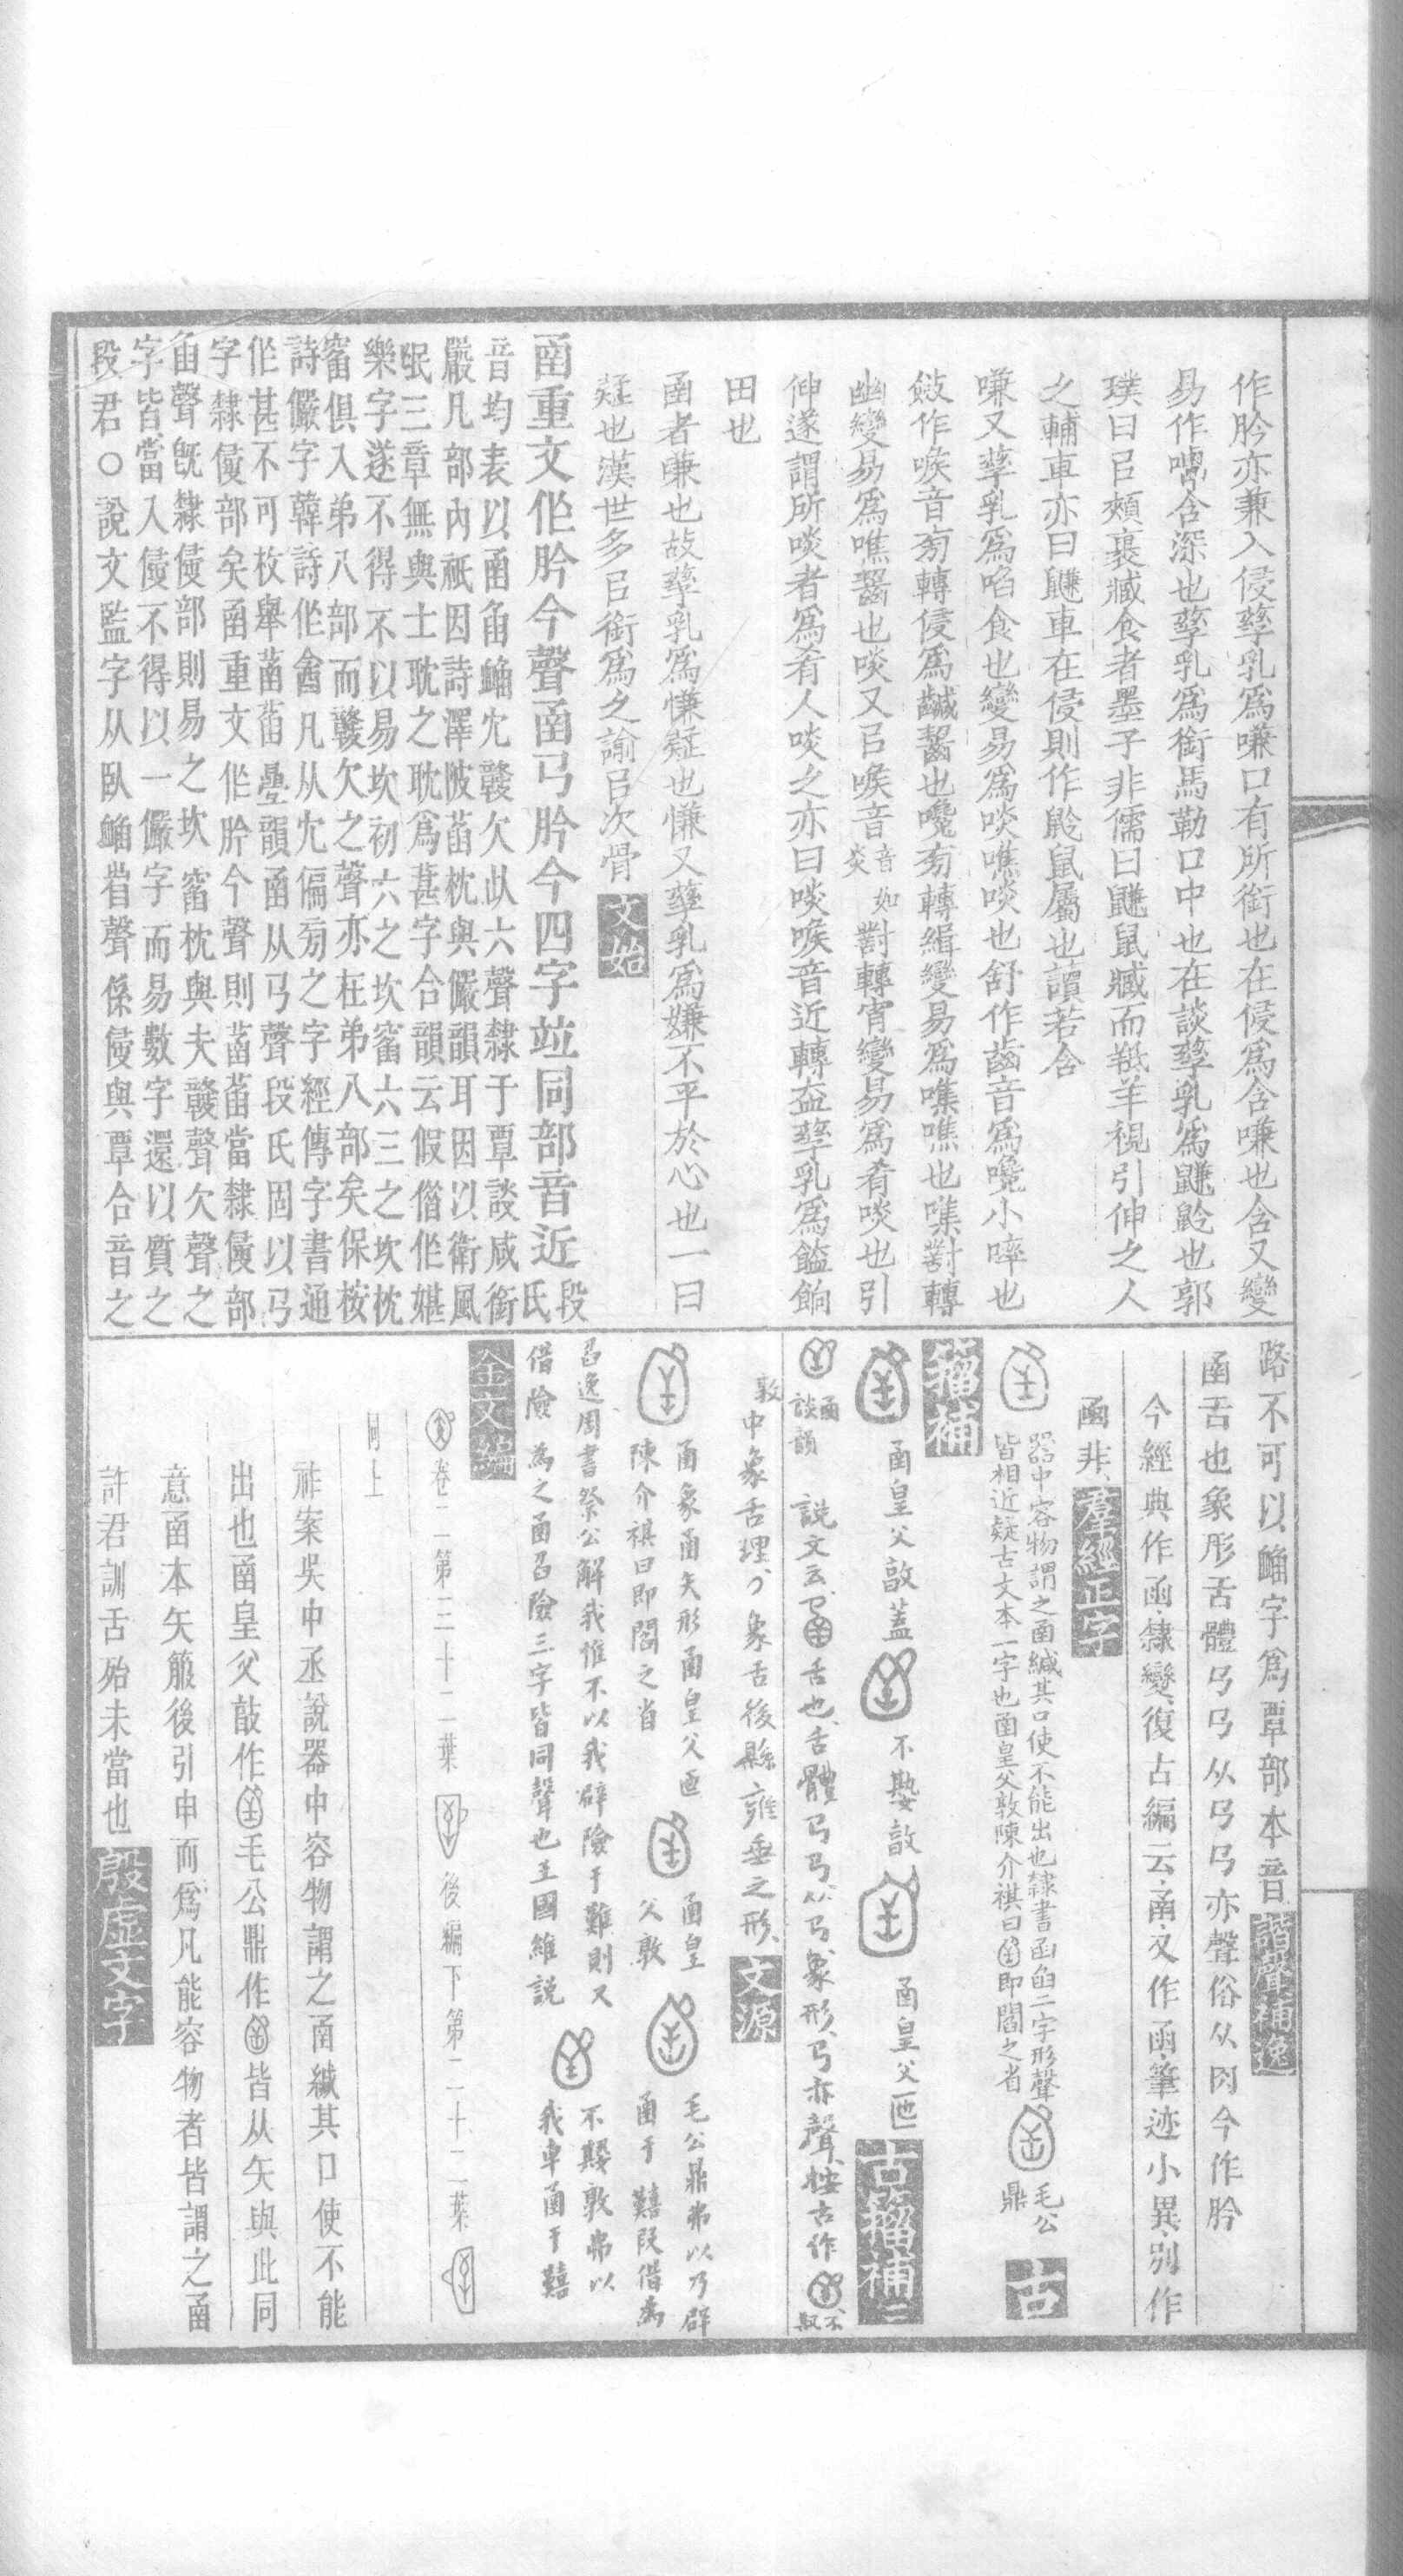 作肣亦兼入侵孳乳爲嗛口有所銜也在侵爲含嗛也含又變
易作㗖含深也孳乳爲銜馬勒口中也在談孳乳爲鼸䶃也郭
璞曰㠯頰裏臧食者墨子非儒曰鼸鼠臧而羝羊視引伸之人
之輔車亦曰鼸車在侵則作䶃鼠屬也讀若含
嗛又孳乳爲啗食也變易爲啖噍啖也舒作齒音爲嚵小啐也
斂作喉音㫄轉侵爲鹹齧也嚵㫄轉緝變易爲噍噍也對轉
幽變易爲噍齧也啖又㠯喉音音如炎對轉宵變易爲肴啖也引
伸遂謂所啖者爲肴人啖之亦曰啖喉音近轉盍孳乳爲饁餉
田也
函者嗛也故孳乳爲慊疑也慊又孳乳爲嫌不平於心也一曰
疑也漢世多㠯銜爲之諭㠯次骨 文始
圅重文作肣今聲圅𢎘肣今四字竝同部音近段氏
音均表以圅臽䧟冘竷欠㺌六聲隸于覃談咸銜
嚴凡部內祇因詩澤陂萏枕與儼韻耳因以衛風
氓三章無與士耽之耽爲葚字合韻云假借作媅
樂字遂不得不以易坎初六之坎窞六三之坎枕
窞俱入弟八部而竷欠之聲亦在弟八部矣保桉
詩儼字韓詩作㜝凡从冘偏㫄之字經傳字書通
作甚不可枚舉菡萏疊韻圅从𢎘聲段氏固以𢎘
字隸侵部矣圅重文作肣今聲則菡萏當隸侵部
臽聲旣隸侵部則易之坎窞枕與夫竷聲欠聲之
字皆當入侵不得以一儼字而易數字還以質之
段君○說文監字从臥䘓省聲係侵與覃合音之
路不可以䘓字爲覃部本音 諧聲補逸
圅舌也象形舌體𢎘𢎘从𢎘𢎘亦聲俗从肉今作肣
今經典作函隸變復古編云圅文作函筆迹小異別作
函非 羣經正字
器中容物謂之圅緘其口使不能出也隸書函臽二字形聲
皆相近疑古文本一字也圅皇父敦陳介祺曰即閻之省 毛公鼎 古
籀補
圅皇父敦蓋 不𡠗敦 圅皇父匜 古籀補二
圅談韻 說文云圅舌也舌體𢎘𢎘从𢎘象形𢎘亦聲按古作 不𡠗
敦中象舌理𠃌象舌後縣雍垂之形 文源
圅象圅矢形圅皇父匜
陳介祺曰即閻之省 圅皇父敦 毛公鼎弗以乃辟圅于囏叚借爲
㕣逸周書祭公解我惟不以我辟險于難則又
借險爲之圅㕣險三字皆同聲也王國維說 不𡠗敦弗以我車圅于囏
金文編
卷二第三十二葉 後編下第二十二葉
同上
祥案吳中丞說器中容物謂之圅緘其口使不能
出也圅皇父敦作 毛公鼎作 皆从矢與此同
意圅本矢箙後引申而爲凡能容物者皆謂之圅
許君訓舌殆未當也 殷虛文字